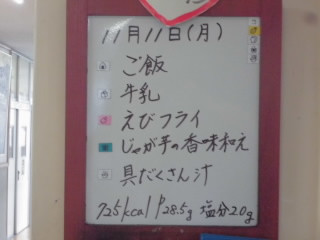 11月11日(月)
ご飯
牛乳
えびフライ
じゃが芋の香味和え
具だくさん汁
725kcal P28.5g 塩分2.0g